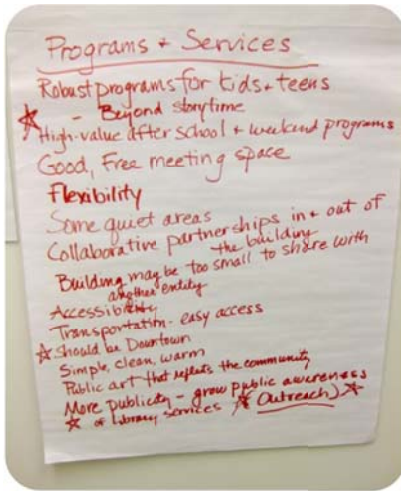 Programs + Services
Robust programs for kids + teens
- Beyond storytime
☆ High-value after school + weekend programs
Good, Free meeting space
Flexibility
Some quiet areas
Collaborative partnerships in + out of
the building
Building may be too small to share with
another entity
Accessibility
Transportation - easy access
☆ Should be Downtown
Simple, clean, warm
Public art that reflects the community
More publicity - grow public awareness
☆ of library services ☆ (Outreach) ☆